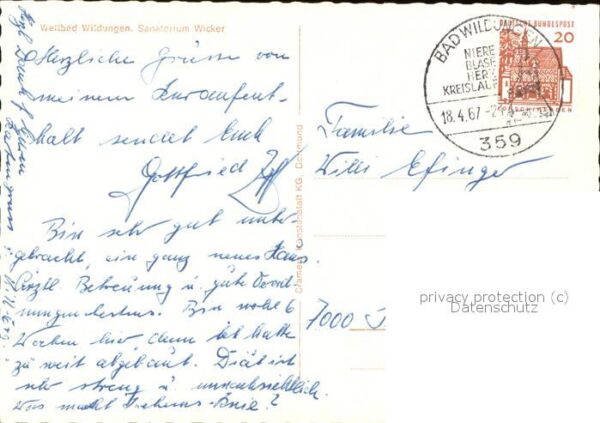 Weltbad Wildungen. Sanatorium Wicker
Herzliche Grüsse von
meinem Kuraufent-
halt sendet Euch
Gottfried
Bin sehr gut unter-
gebracht, ein ganz neues Haus.
Ärztl. Betreuung u. gute
bestens. Bin wohl 6
Wochen hier denn ich hatte
zu weit abgebaut. Diät ist
sehr streng u.
Was macht Knie?
Herzl. Dank f.
Cramers Kunstanstalt KG, Dortmund
DEUTSCHE BUNDESPOST
20
BAD WILDUNGEN
NIERE
BLASE
HERZ
KREISLAUF
18.4.67
359
Familie
Willi Efinger
7000
privacy protection (c)
Datenschutz